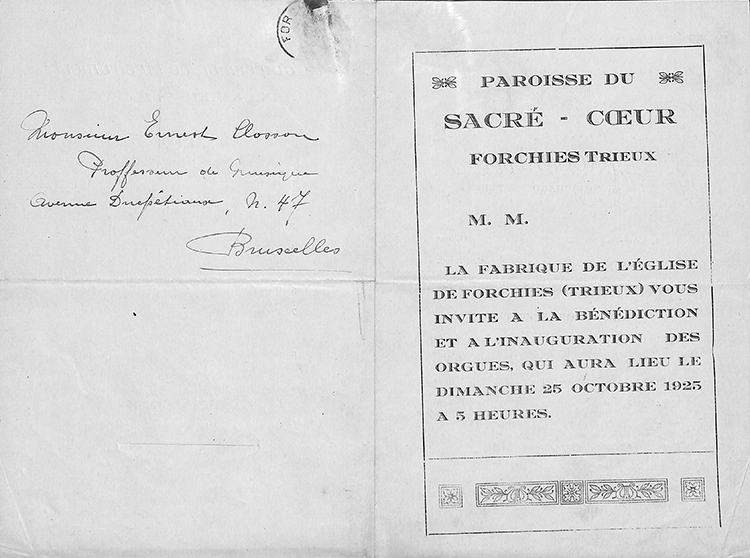 FOR
Monsieur Ernest Closson
Proffesseur de musique
Avenue Ducpétiaux, N. 47
Bruxelles
PAROISSE DU
SACRÉ - CŒUR
FORCHIES TRIEUX
M. M.
LA FABRIQUE DE L'ÉGLISE
DE FORCHIES (TRIEUX) VOUS
INVITE A LA BÉNÉDICTION
ET A L'INAUGURATION DES
ORGUES, QUI AURA LIEU LE
DIMANCHE 25 OCTOBRE 1925
A 5 HEURES.